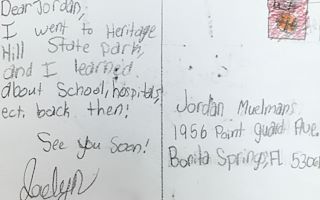 Dear Jordan,
I went to Heritage
Hill State Park,
and I learned
about School, hospitals,
ect. back then!
See you Soon!
Jaelyn
Jordan Muelmans
1956 Point guard Ave.
Bonita Springs, FL 5306